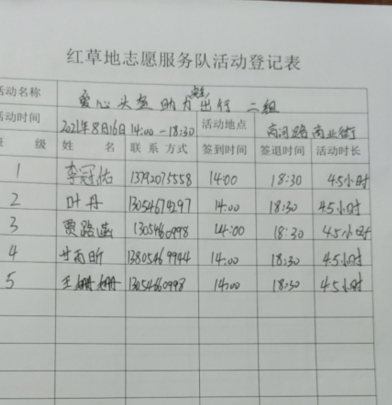 红草地志愿服务队活动登记表
活动名称 爱心头盔 助力安全出行 二组
活动时间 2021年8月16日 14:00-18:30 活动地点 商河路商业街
班 级 姓 名 联系方式 签到时间 签退时间 活动时长
1 李冠佑 13792075558 14:00 18:30 4.5小时
2 叶丹 13054674297 14:00 18:30 4.5小时
3 贾路遥 1305460998 14:00 18:30 4.5小时
4 甘雨昕 13805469944 14:00 18:30 4.5小时
5 王姗姗 13054660998 14:00 18:30 4.5小时